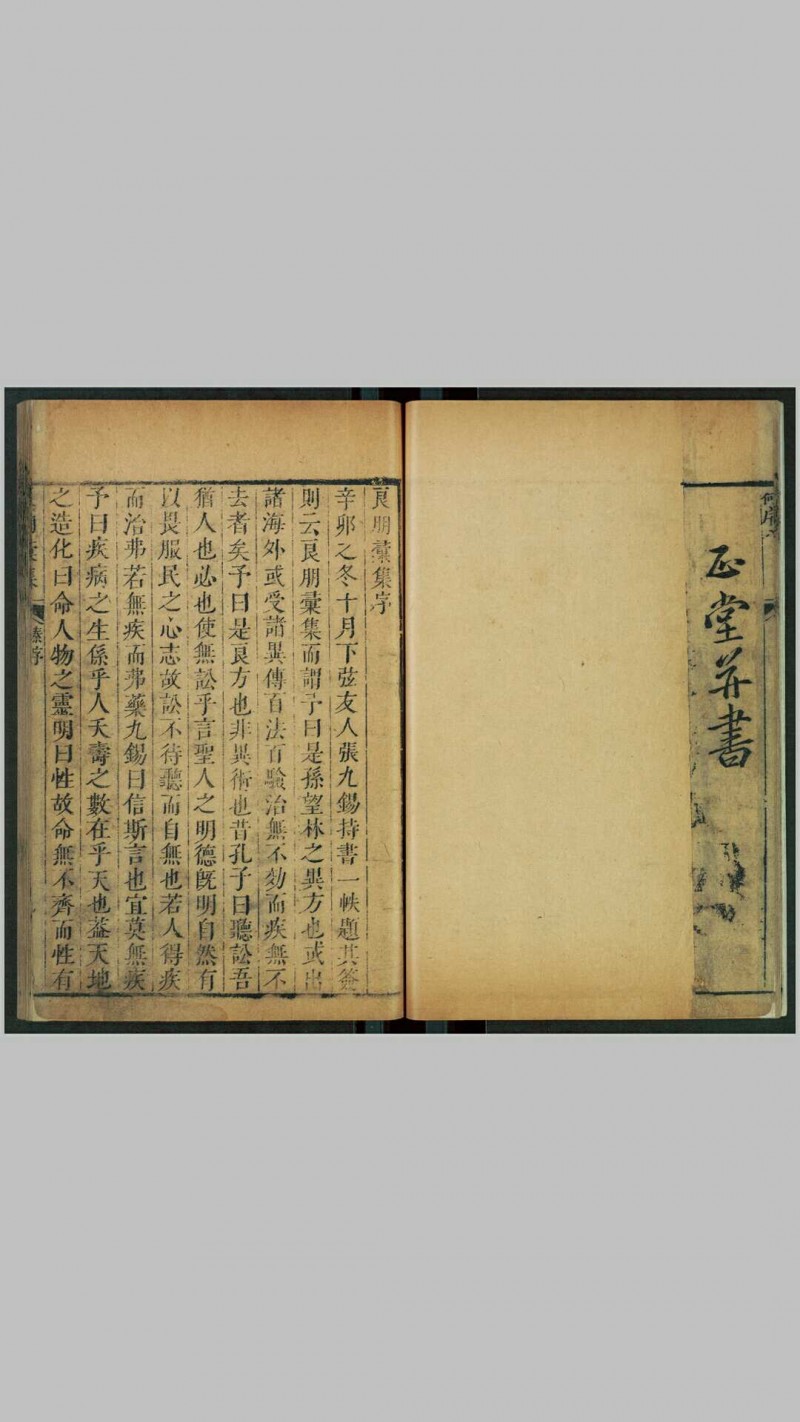 正堂并書
良朋彙集序
辛卯之冬十月下弦友人張九錫持書一帙題其簽
則云良朋彙集而謂予曰是孫望林之異方也或出
諸海外或受諸異傳百法百驗治無不効而疾無不
去者矣予曰是良方也非異術也昔孔子曰聽訟吾
猶人也必也使無訟乎言聖人之明德旣明自然有
以畏服民之心志故訟不待聽而自無也若人得疾
而治弗若無疾而弗藥九錫曰信斯言也宜莫無疾
予曰疾病之生係乎人夭壽之數在乎天也蓋天地
之造化曰命人物之靈明曰性故命無不齊而性有